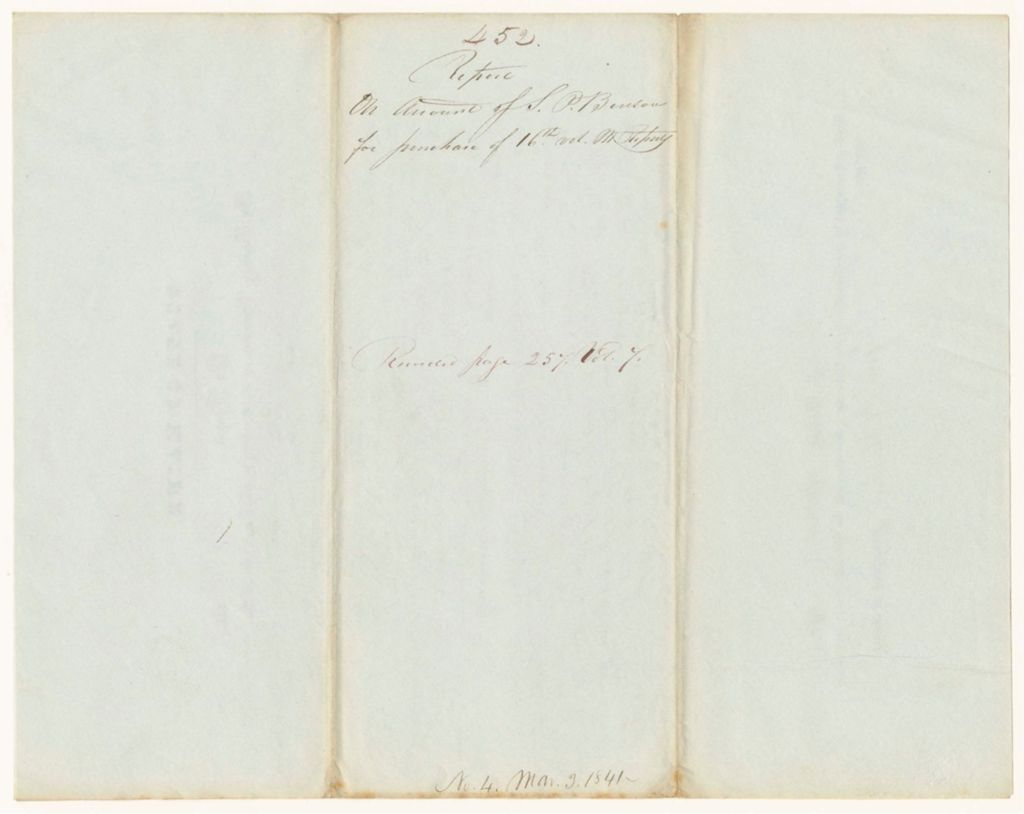 452.
Report
On Account of S. P. Benson
for purchase of 16th vol. Me Reports
Recorded page 257, Vol. 7.
No. 4. Mar. 3. 1841